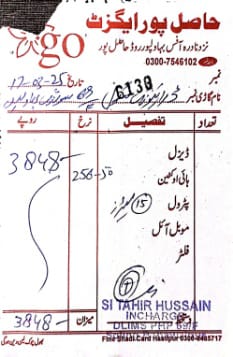 حاصل پور ایگزٹ
go
نزد نادرہ آفس بہاولپور روڈ حاصل پور
0300-7546102
نمبر 6138 تاریخ 17-03-25
نام گاڑی نمبر
تعداد تفصیل نرخ روپے
ڈیزل
ہائی اوکٹین
پٹرول 15 256-50 3848-
موبل آئل
فلٹر
SI TAHIR HUSSAIN
INCHARGE
DLIMS PHP
میزان 3848-
بھول چوک لین دین ہوگی